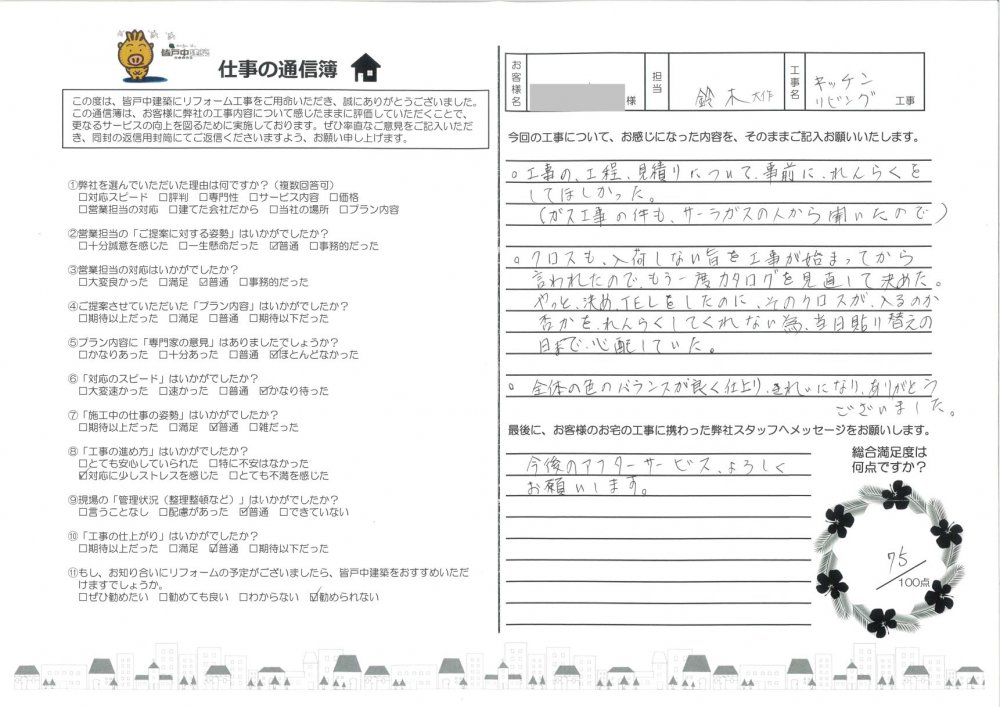 皆戸中建築
仕事の通信簿
この度は、皆戸中建築にリフォーム工事をご用命いただき、誠にありがとうございました。
この通信簿は、お客様に弊社の工事内容について感じたままに評価していただくことで、
更なるサービスの向上を図るために実施しております。ぜひ率直なご意見をご記入いただ
き、同封の返信用封筒にてご返信くださいますよう、お願い申し上げます。
①弊社を選んでいただいた理由は何ですか？（複数回答可）
□対応スピード □評判 □専門性 □サービス内容 □価格
□営業担当の対応 □建てた会社だから □当社の場所 □プラン内容
②営業担当の「ご提案に対する姿勢」はいかがでしたか？
□十分誠意を感じた □一生懸命だった ☑普通 □事務的だった
③営業担当の対応はいかがでしたか？
□大変良かった □満足 ☑普通 □事務的だった
④ご提案させていただいた「プラン内容」はいかがでしたか？
□期待以上だった □満足 ☑普通 □期待以下だった
⑤プラン内容に「専門家の意見」はありましたでしょうか？
□かなりあった □十分あった □普通 ☑ほとんどなかった
⑥「対応のスピード」はいかがでしたか？
□大変速かった □速かった □普通 ☑かなり待った
⑦「施工中の仕事の姿勢」はいかがでしたか？
□期待以上だった □満足 ☑普通 □雑だった
⑧「工事の進め方」はいかがでしたか？
□とても安心していられた □特に不安はなかった
☑対応に少しストレスを感じた □とても不満を感じた
⑨現場の「管理状況（整理整頓など）」はいかがでしたか？
□言うことなし □配慮があった ☑普通 □できていない
⑩「工事の仕上がり」はいかがでしたか？
□期待以上だった □満足 ☑普通 □期待以下だった
⑪もし、お知り合いにリフォームの予定がございましたら、皆戸中建築をおすすめいただ
けますでしょうか。
□ぜひ勧めたい □勧めても良い □わからない ☑勧められない
お客様名 様 担当 鈴木大作 工事名 キッチン
リビング 工事
今回の工事について、お感じになった内容を、そのままご記入お願いいたします。
○工事の、工程、見積りについて、事前に、れんらくを
してほしかった。
（ガス工事の件も、サーラガスの人から聞いたので）
○クロスも、入荷しない旨を工事が始まってから
言われたので、もう一度カタログを見直して決めた。
やっと、決め、TELをしたのに、そのクロスが、入るのか
否かを、れんらくしてくれない為、当日貼り替えの
日まで、心配していた。
○全体の色のバランスが良く仕上り、きれいになり、ありがとう
ございました。
最後に、お客様のお宅の工事に携わった弊社スタッフへメッセージをお願いします。
今後のアフターサービス、よろしく
お願いします。
総合満足度は
何点ですか？
75
100点